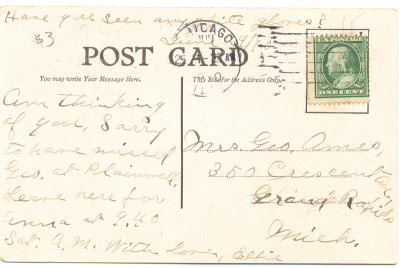 Have you seen any white gloves?
$3
CHICAGO
POST CARD
You may write Your Message Here.
This Side for the Address Only.
ONE CENT
Am thinking
of you, Sorry
to have missed
Geo. at Plainwell,
Leave here for
Anna at 9.40
Sat. A.M. With love, Effie
Mrs. Geo. Ames,
350 Crescent Av.
Grand Rapids
Mich.